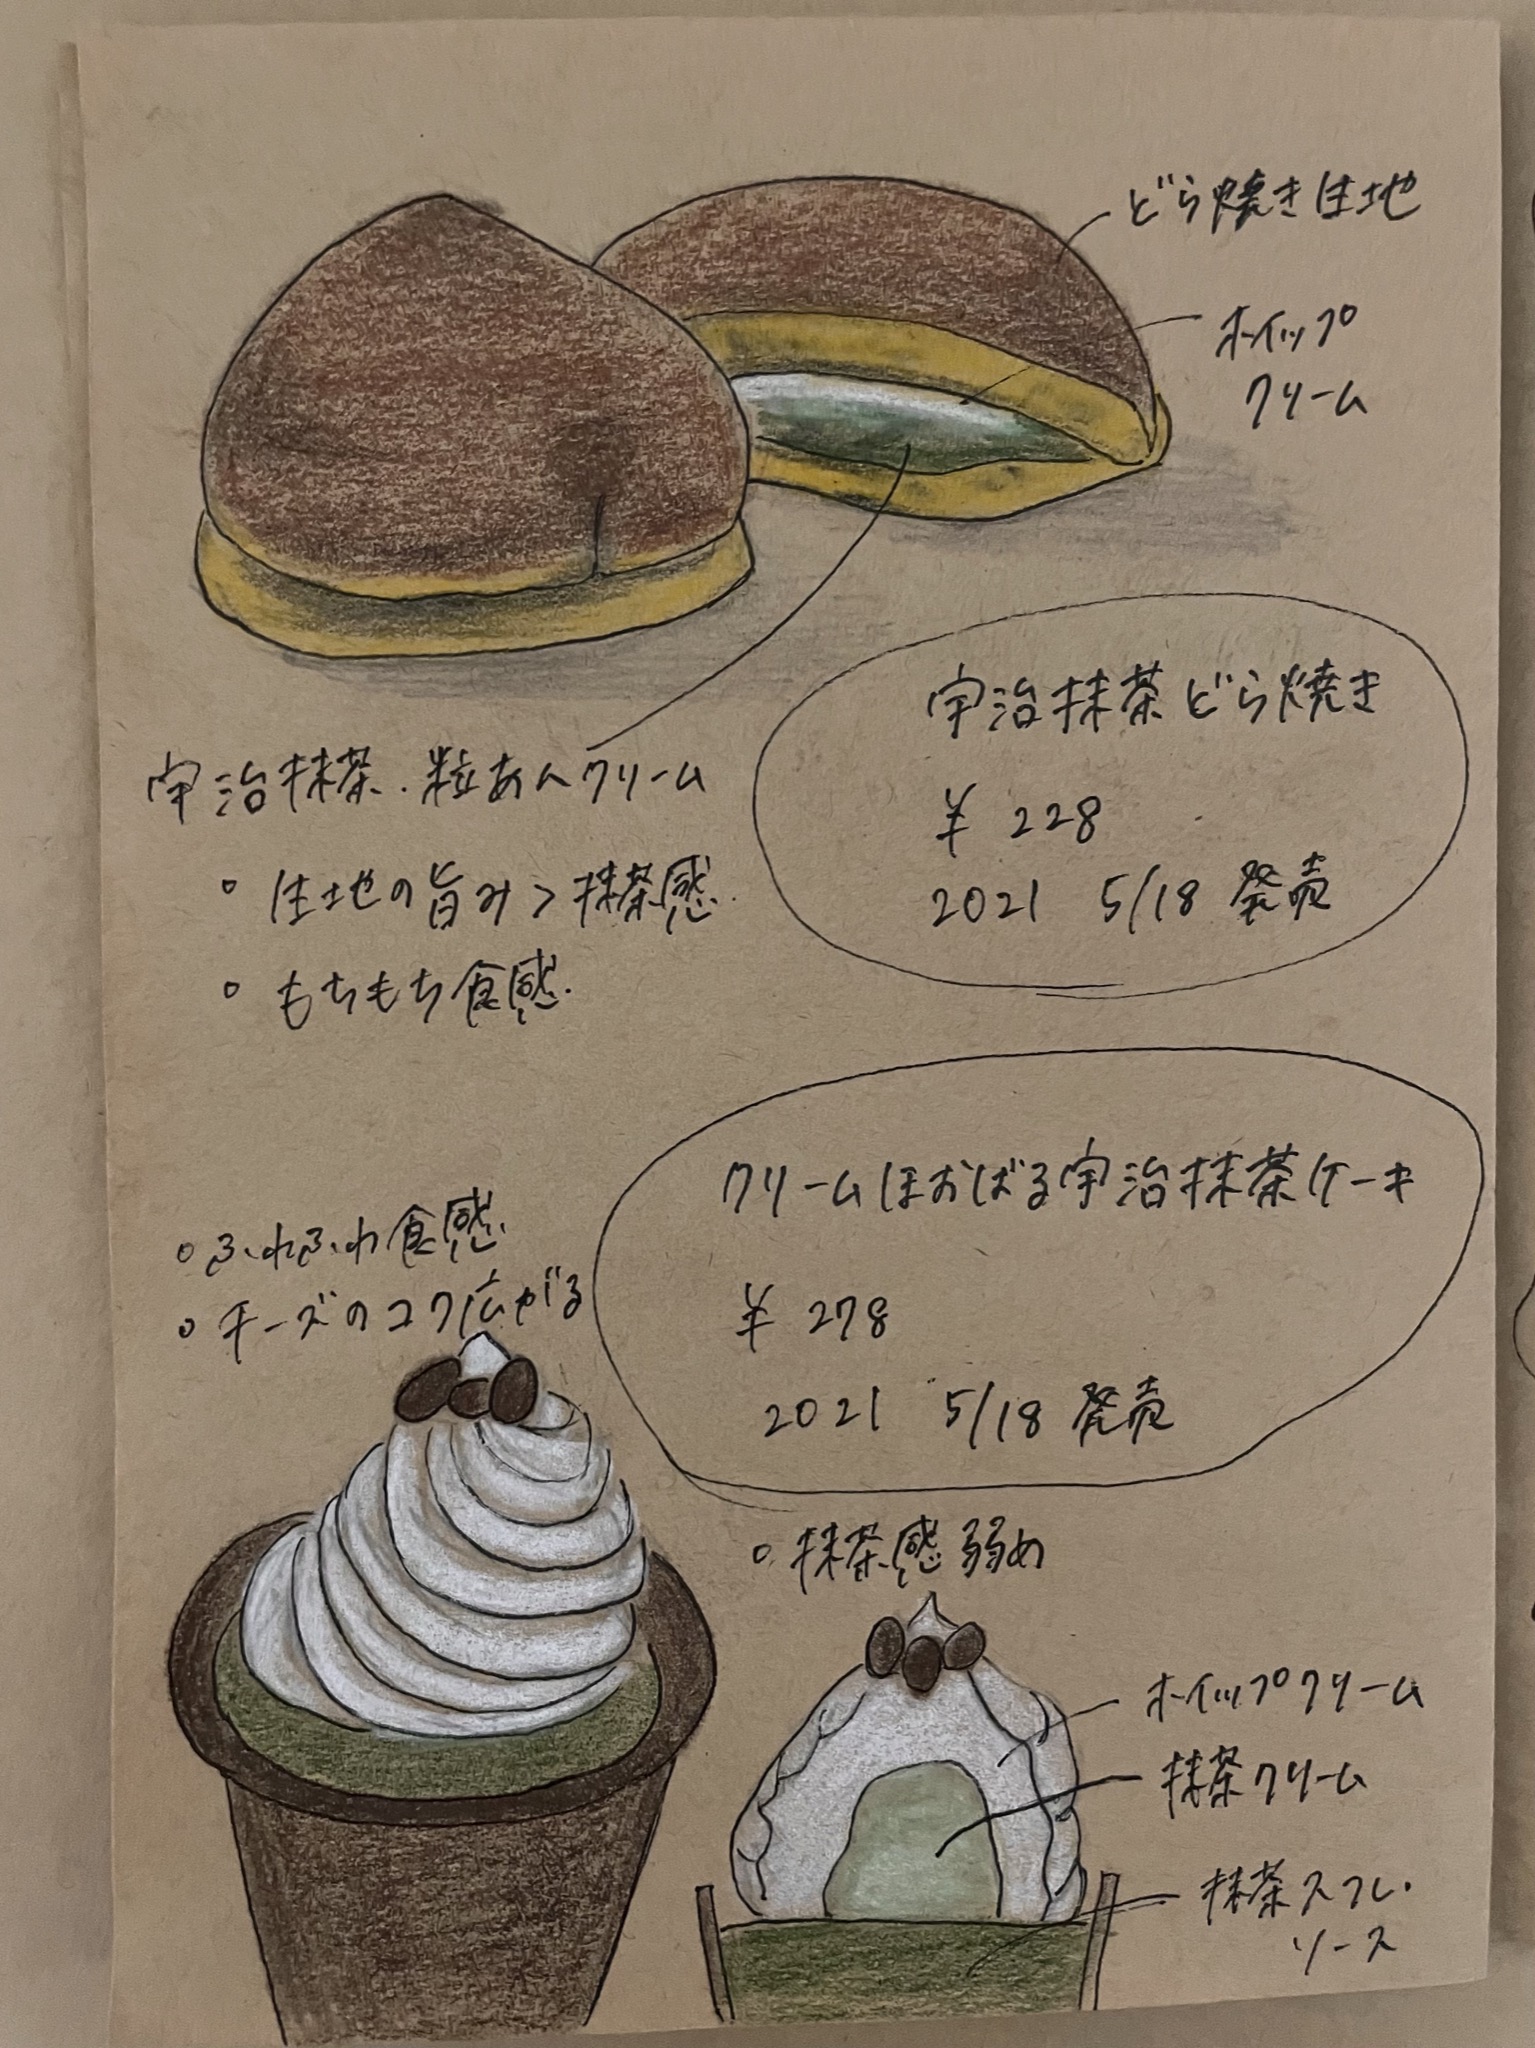 どら焼き生地
ホイップ
クリーム
宇治抹茶どら焼き
¥ 228
2021 5/18 発売
宇治抹茶・粒あんクリーム
。生地の旨み>抹茶感
。もちもち食感.
クリームほおばる宇治抹茶ケーキ
¥ 278
2021 5/18 発売
。ふわふわ食感
。チーズのコク広がる
。抹茶感弱め
ホイップクリーム
抹茶クリーム
抹茶スフレ・
ソース